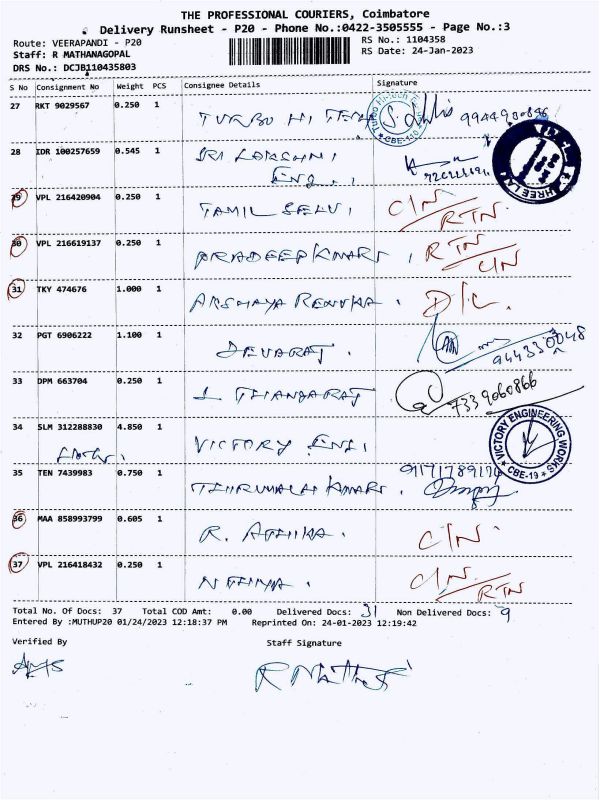 THE PROFESSIONAL COURIERS, Coimbatore
Delivery Runsheet - P20 - Phone No.:0422-3505555 - Page No.:3
Route: VEERAPANDI - P20 RS No.: 1104358
Staff: R MATHANAGOPAL RS Date: 24-Jan-2023
DRS No.: DCJB110435803
S No Consignment No Weight PCS Consignee Details Signature
27 RKT 9029567 0.250 1 TURBO HI TECH
28 IDR 100257659 0.545 1 SRI LAKSHMI
ENG.
29 VPL 216420904 0.250 1 TAMIL SELVI C/N
RTN
30 VPL 216619137 0.250 1 PRADEEP KMAR RTN
C/N
31 TKY 474676 1.000 1 AKSHAYA RENUKA. D/L.
32 PGT 6906222 1.100 1 DEVARAJ.
33 DPM 663704 0.250 1 THANGARAJ 7339060866
34 SLM 312288830 4.850 1 VICTORY ENG VICTORY ENGINEERING WORKS CBE-19
35 TEN 7439983 0.750 1 THIRUMALAI KMAR.
36 MAA 858993799 0.605 1 R. C/N.
37 VPL 216418432 0.250 1 NITHIYA. C/N
RTN
Total No. Of Docs: 37 Total COD Amt: 0.00 Delivered Docs: 31 Non Delivered Docs: 9
Entered By :MUTHUP20 01/24/2023 12:18:37 PM Reprinted On: 24-01-2023 12:19:42
Verified By Staff Signature